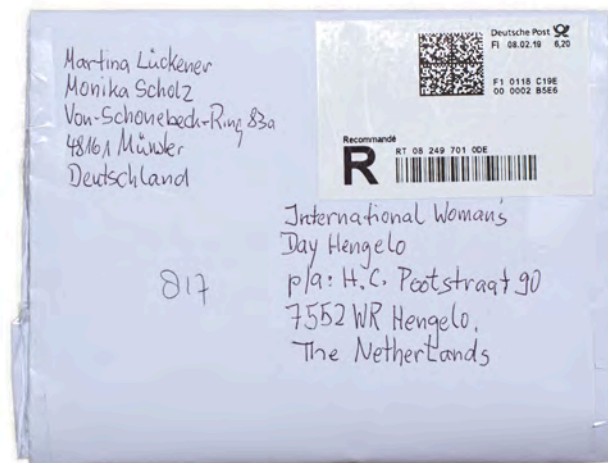 Martina Lückener
Monika Scholz
Von-Schonebeck-Ring 83a
48161 Münster
Deutschland
Deutsche Post
FI 08.02.19 6,20
F1 0118 C19E
00 0002 B5E6
Recommandé
R
RT 08 249 701 0DE
International Woman's
Day Hengelo
p/a: H.C. Pootstraat 90
7552 WR Hengelo,
The Netherlands
817